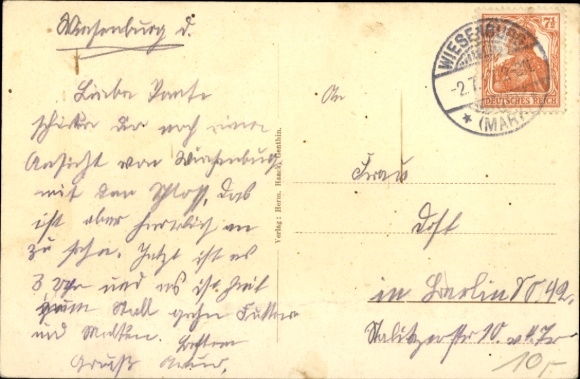 Wiesenburg d.
Liebe Tante
schicke Dir noch einen
Ansicht von Wiesenburg
mit dem Schloß, das
ist aber herrlich an
zu sehn. Jetzt ist es
3 Uhr und es ist Zeit
zum Stall gehn Futtern
und Melken. Besten
Gruß
Verlag: Herm. Haack, Genthin.
WIESENBURG
-2.7.
* (MARK)
7½
DEUTSCHES REICH
An
Frau
Dost
in Berlin SO 42.
Skalitzerstr 10. v.
10,-